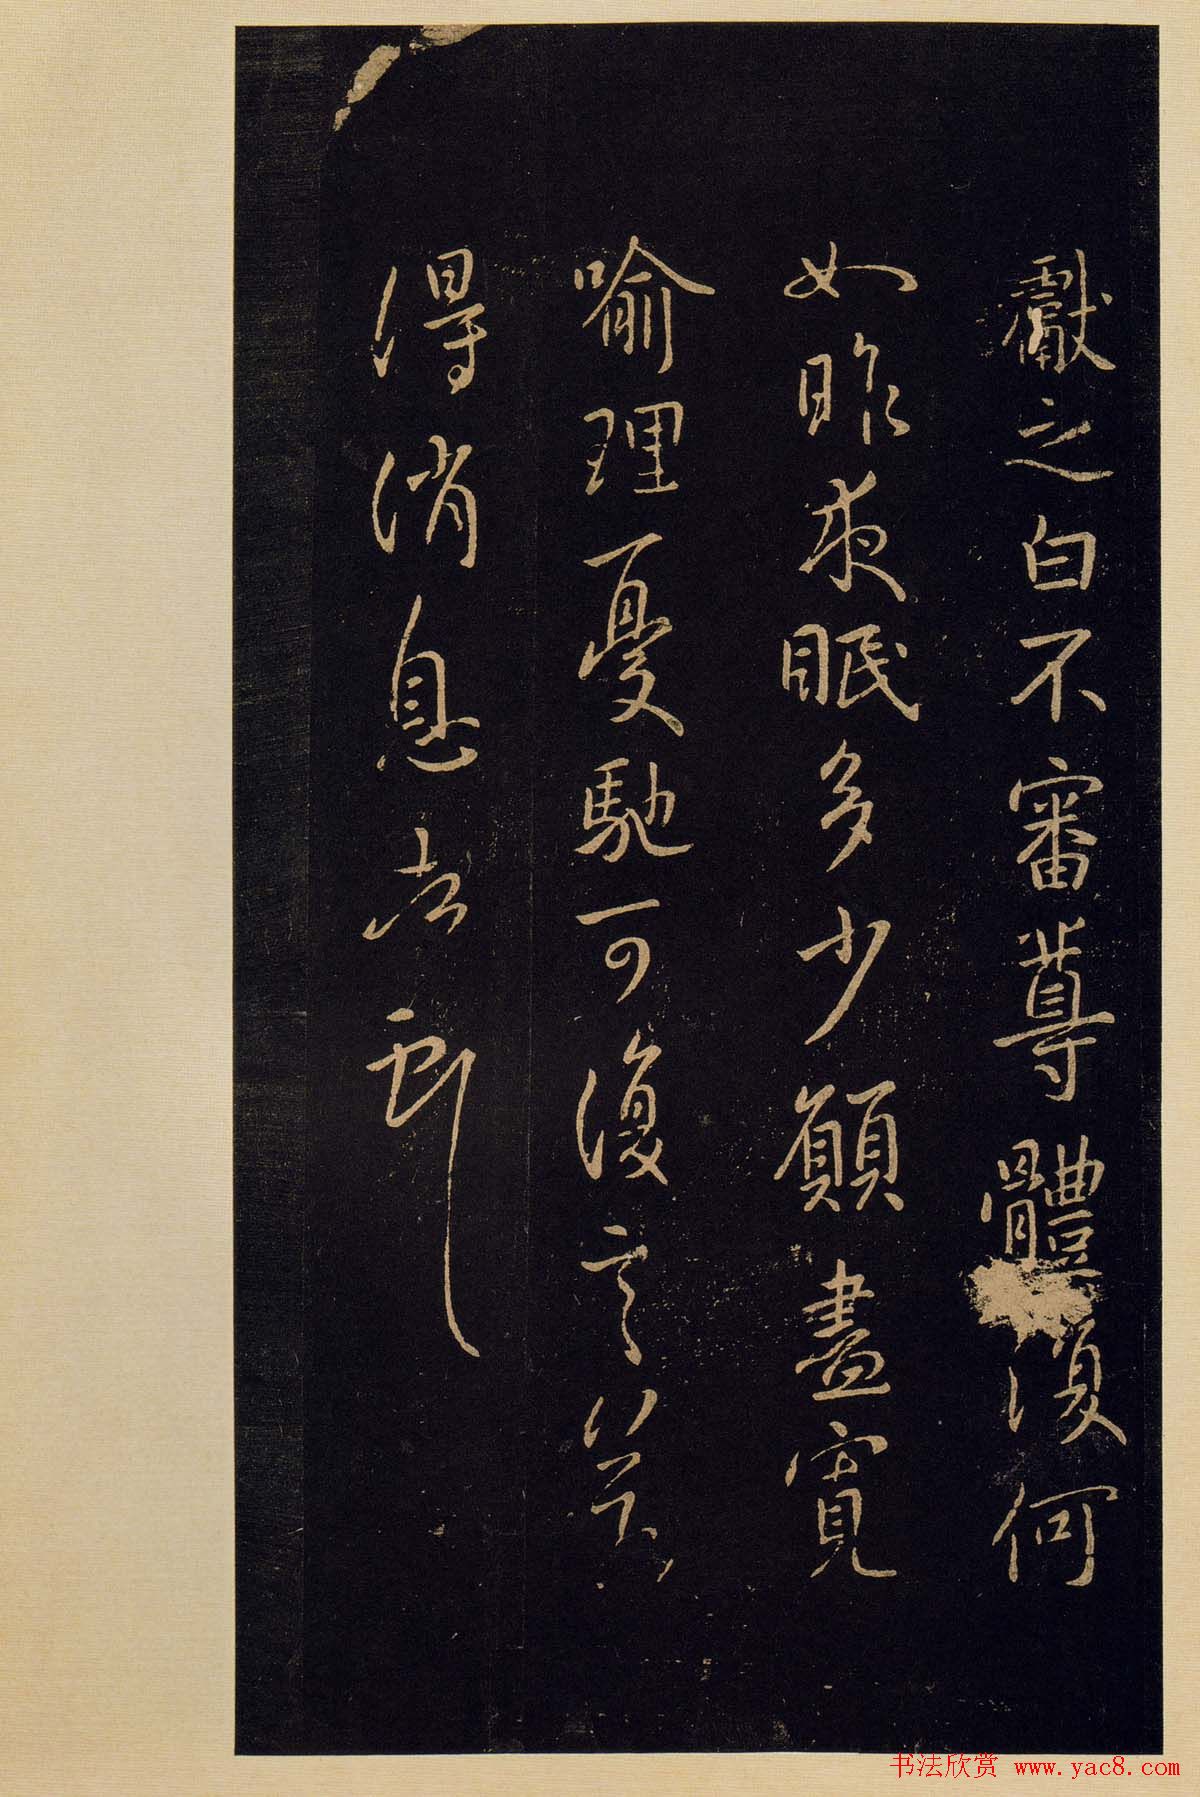 獻之白不審尊體復何
如昨夜眠多少願盡寬
喻理憂馳可復言
得消息
书法欣赏 www.yac8.com